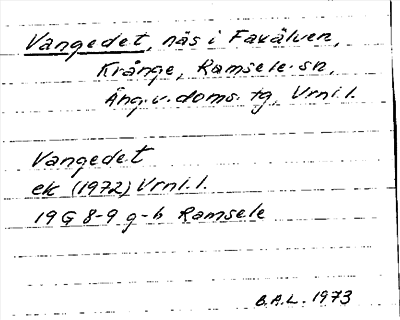 Vangedet, näs i Faxälven,
Krånge, Ramsele sn,
Ång.v. doms. tg, Vrnl.l.
Vangedet
ek (1972) Vrnl.l.
19 G 8-9 g-h Ramsele
B.A.L. 1973